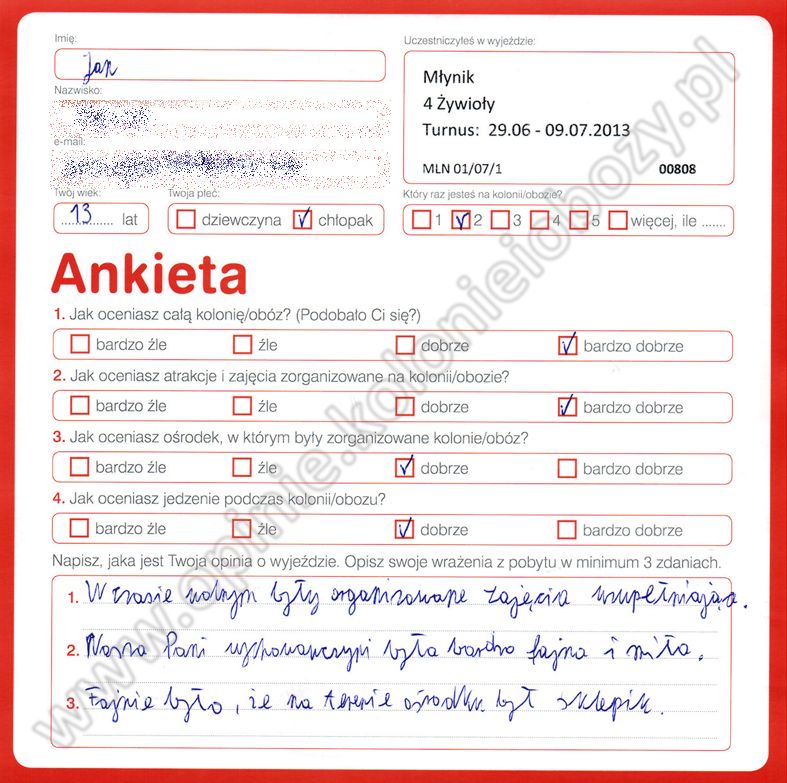 Imię:
Jan
Nazwisko:
e-mail:
Twój wiek:
13 lat
Twoja płeć:
dziewczyna chłopak
Uczestniczyłeś w wyjeździe:
Młynik
4 Żywioły
Turnus: 29.06 - 09.07.2013
MLN 01/07/1 00808
Który raz jesteś na kolonii/obozie?
1 2 3 4 5 więcej, ile .......
Ankieta
1. Jak oceniasz całą kolonię/obóz? (Podobało Ci się?)
bardzo źle źle dobrze bardzo dobrze
2. Jak oceniasz atrakcje i zajęcia zorganizowane na kolonii/obozie?
bardzo źle źle dobrze bardzo dobrze
3. Jak oceniasz ośrodek, w którym były zorganizowane kolonie/obóz?
bardzo źle źle dobrze bardzo dobrze
4. Jak oceniasz jedzenie podczas kolonii/obozu?
bardzo źle źle dobrze bardzo dobrze
Napisz, jaka jest Twoja opinia o wyjeździe. Opisz swoje wrażenia z pobytu w minimum 3 zdaniach.
1. W czasie wolnym były organizowane zajęcia uzupełniające.
2. Nasza Pani wychowawczyni była bardzo fajna i miła.
3. Fajnie było, że na terenie ośrodku był sklepik.
www.opinie.kolonieiobozy.pl